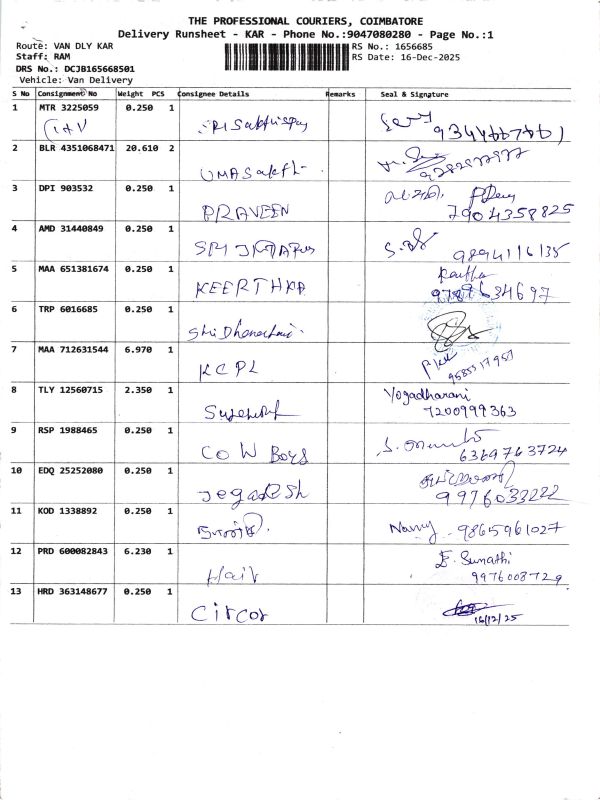 THE PROFESSIONAL COURIERS, COIMBATORE
Delivery Runsheet - KAR - Phone No.:9047080280 - Page No.:1
Route: VAN DLY KAR RS No.: 1656685
Staff: RAM RS Date: 16-Dec-2025
DRS No.: DCJB165668501
Vehicle: Van Delivery
S No Consignment No Weight PCS Consignee Details Remarks Seal & Signature
1 MTR 3225059 0.250 1
2 BLR 4351068471 20.610 2
UMA Sakthi
3 DPI 903532 0.250 1
PRAVEEN 7904358825
4 AMD 31440849 0.250 1
9894116138
5 MAA 651381674 0.250 1
KEERTHKA
6 TRP 6016685 0.250 1
7 MAA 712631544 6.970 1
KCPL 9585517957
8 TLY 12560715 2.350 1
Yogadharani
7200999363
9 RSP 1988465 0.250 1
COW Boys 6369763724
10 EDQ 25252080 0.250 1
Jegadesh 9976033222
11 KOD 1338892 0.250 1
9865961027
12 PRD 600082843 6.230 1
Hair E. Sumathi
9976008729
13 HRD 363148677 0.250 1
Circor 16/12/25